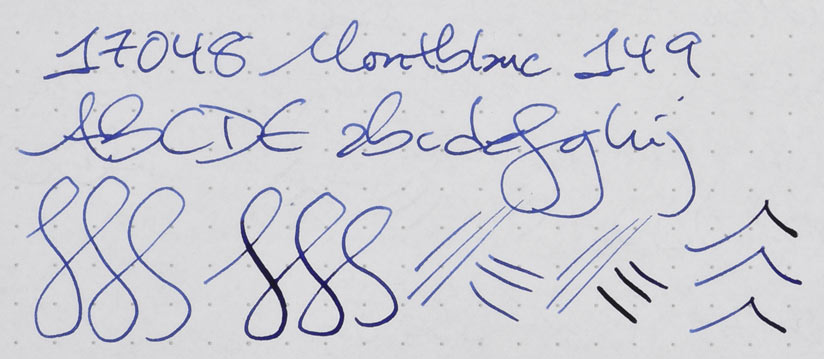 17048 Montblanc 149
ABCDE abcdefghij